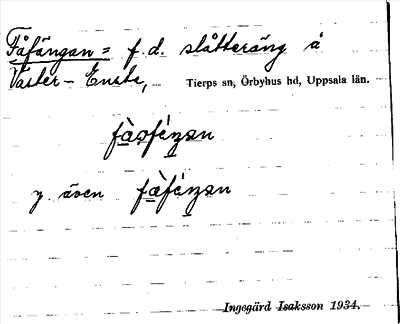 Fåfängan = f. d. slåtteräng å
Väster-Ensta, Tierps sn, Örbyhus hd, Uppsala län.
y även
Ingegärd Isaksson 1934.